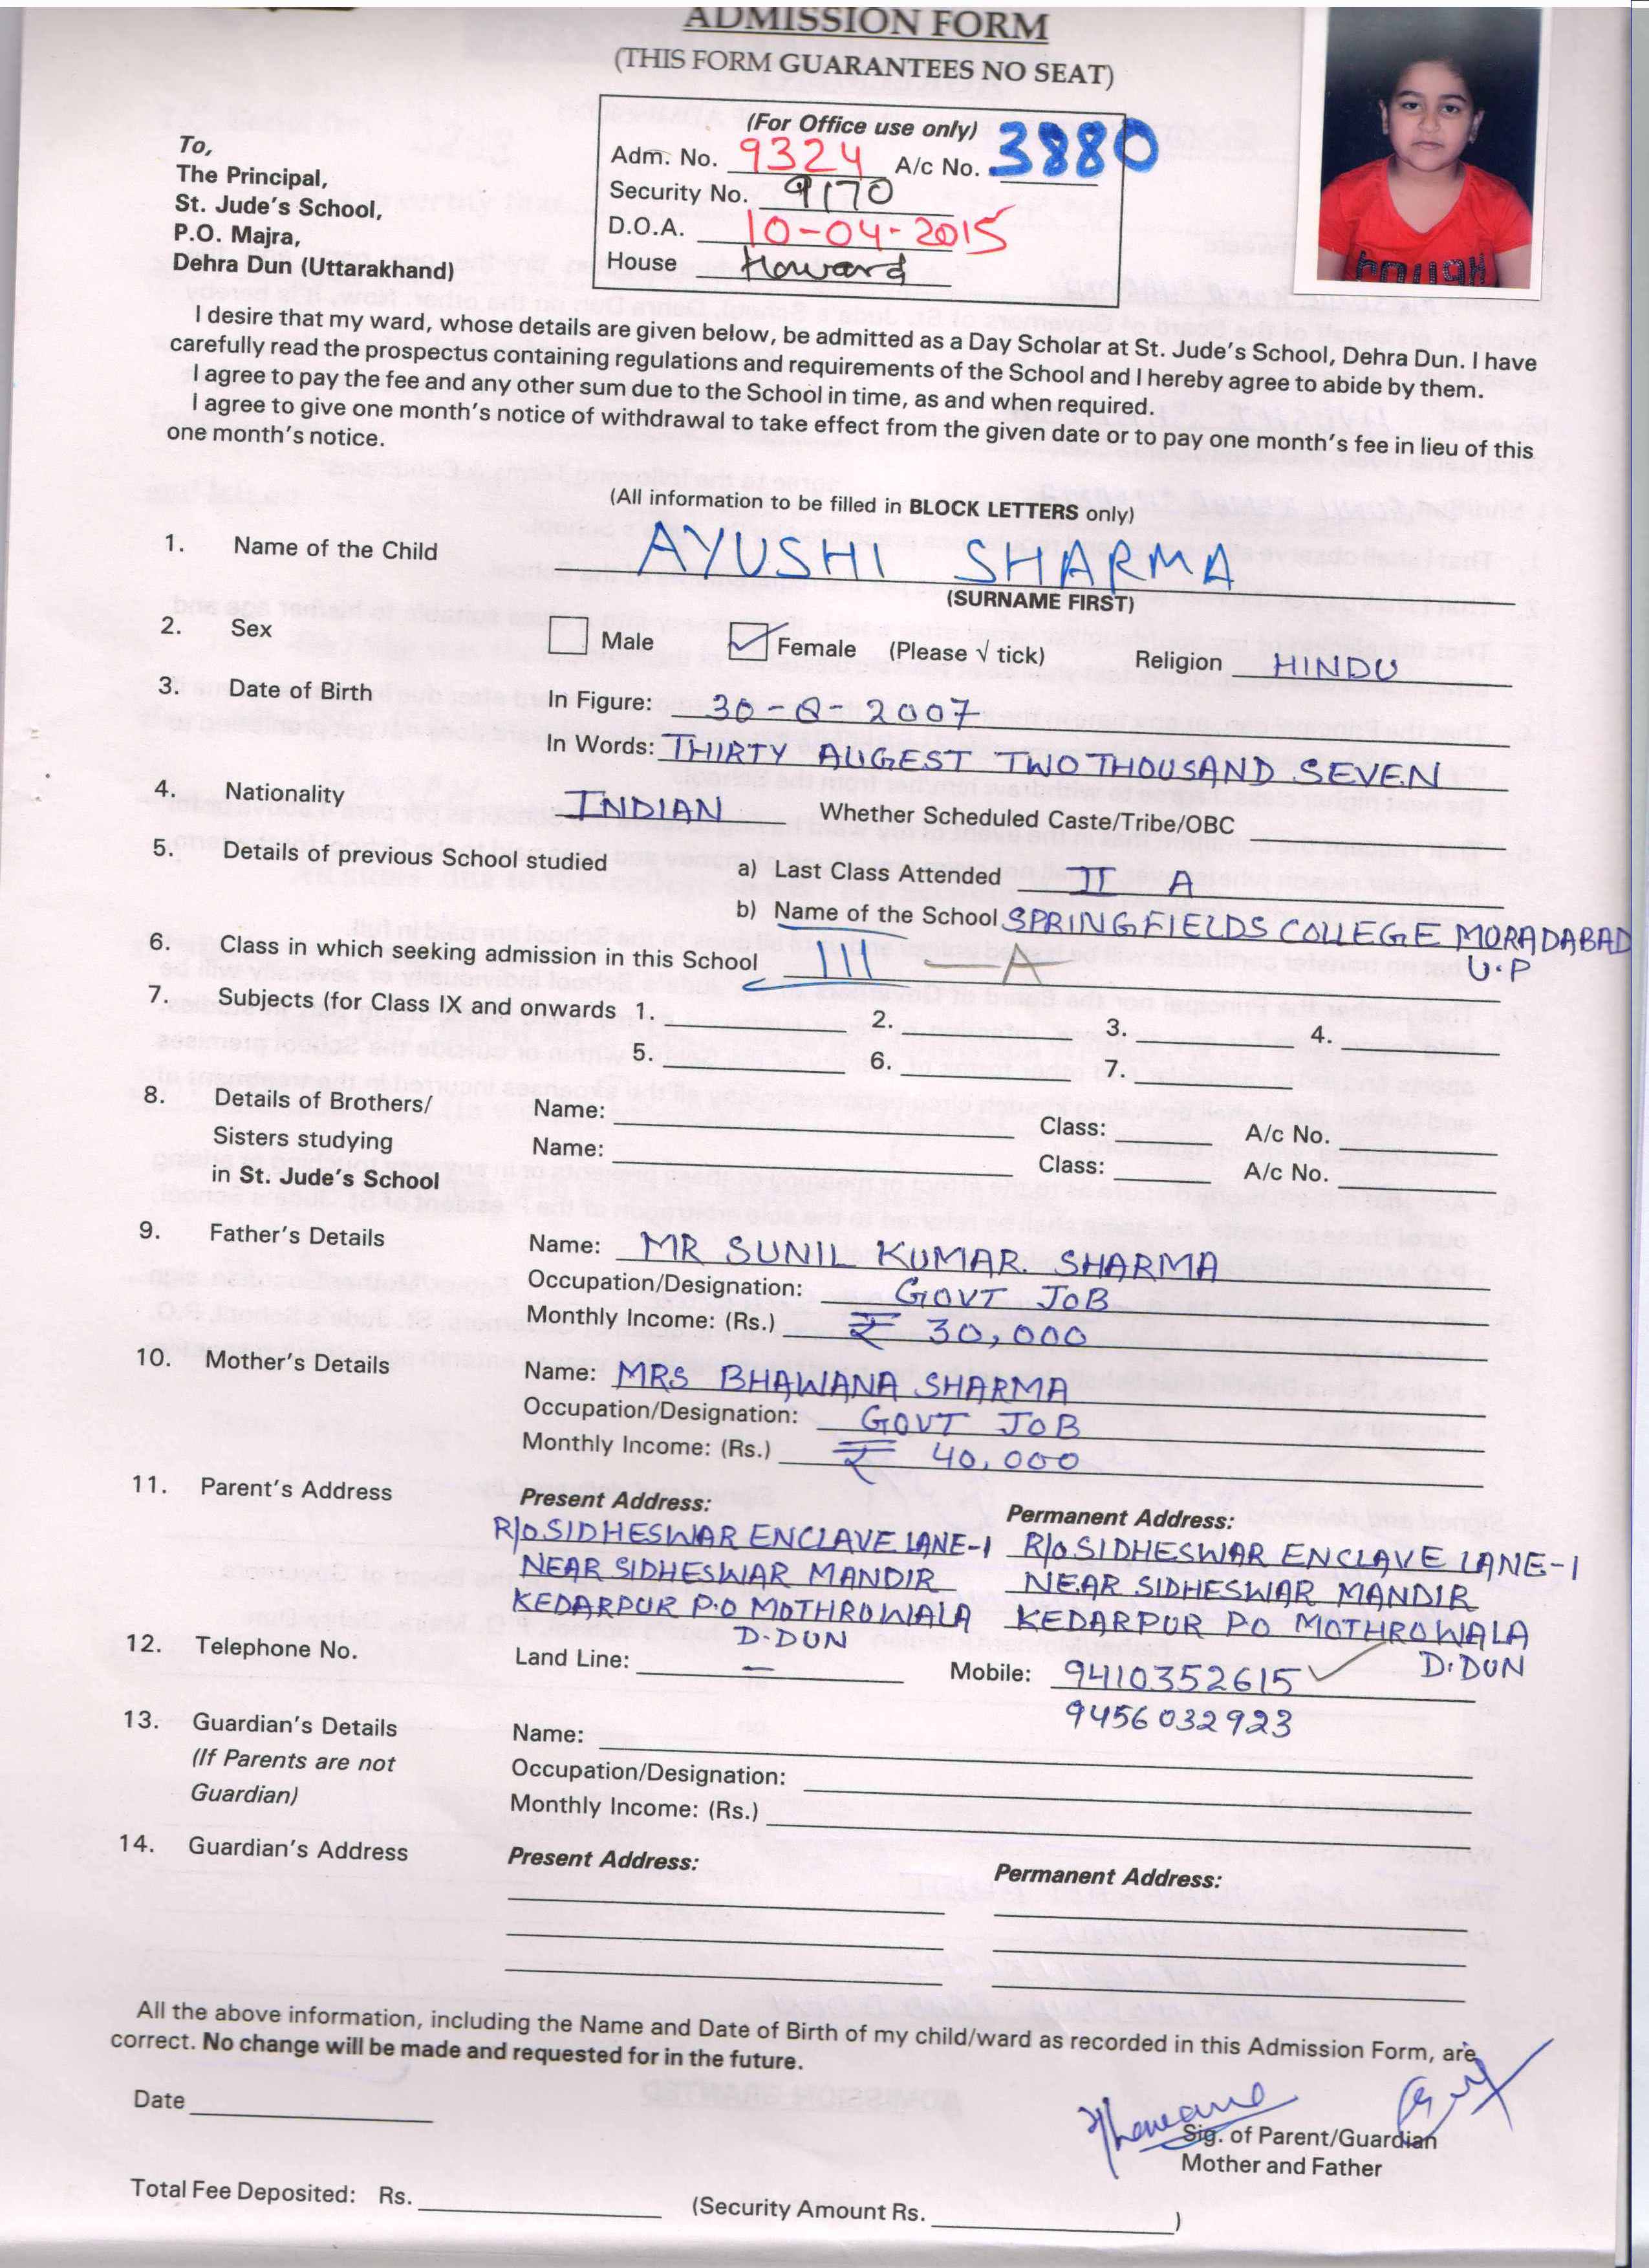 ADMISSION FORM
(THIS FORM GUARANTEES NO SEAT)
To,
The Principal,
St. Jude's School,
P.O. Majra,
Dehra Dun (Uttarakhand)
(For Office use only)
Adm. No. 9324 A/c No. 3880
Security No. 9170
D.O.A. 10-04-2015
House Howard
I desire that my ward, whose details are given below, be admitted as a Day Scholar at St. Jude's School, Dehra Dun. I have
carefully read the prospectus containing regulations and requirements of the School and I hereby agree to abide by them.
I agree to pay the fee and any other sum due to the School in time, as and when required.
I agree to give one month's notice of withdrawal to take effect from the given date or to pay one month's fee in lieu of this
one month's notice.
(All information to be filled in BLOCK LETTERS only)
1. Name of the Child AYUSHI SHARMA
(SURNAME FIRST)
2. Sex Male Female (Please √ tick) Religion HINDU
3. Date of Birth In Figure: 30-8-2007
In Words: THIRTY AUGEST TWO THOUSAND SEVEN
4. Nationality INDIAN Whether Scheduled Caste/Tribe/OBC
5. Details of previous School studied a) Last Class Attended II A
b) Name of the School SPRINGFIELDS COLLEGE MORADABAD
U.P
6. Class in which seeking admission in this School III - A
7. Subjects (for Class IX and onwards 1. 2. 3. 4.
5. 6. 7.
8. Details of Brothers/ Name: Class: A/c No.
Sisters studying Name: Class: A/c No.
in St. Jude's School
9. Father's Details Name: MR SUNIL KUMAR. SHARMA
Occupation/Designation: GOVT JOB
Monthly Income: (Rs.) ₹ 30,000
10. Mother's Details Name: MRS BHAWANA SHARMA
Occupation/Designation: GOVT JOB
Monthly Income: (Rs.) ₹ 40,000
11. Parent's Address Present Address: Permanent Address:
R/O SIDHESWAR ENCLAVE LANE-1 R/O SIDHESWAR ENCLAVE LANE-1
NEAR SIDHESWAR MANDIR NEAR SIDHESWAR MANDIR
KEDARPUR P.O MOTHROWALA KEDARPUR PO MOTHROWALA
D.DUN D.DUN
12. Telephone No. Land Line: — Mobile: 9410352615
9456032923
13. Guardian's Details Name:
(If Parents are not Occupation/Designation:
Guardian) Monthly Income: (Rs.)
14. Guardian's Address Present Address: Permanent Address:
All the above information, including the Name and Date of Birth of my child/ward as recorded in this Admission Form, are
correct. No change will be made and requested for in the future.
Date
Bhawana
Sig. of Parent/Guardian
Mother and Father
Total Fee Deposited: Rs. (Security Amount Rs. )